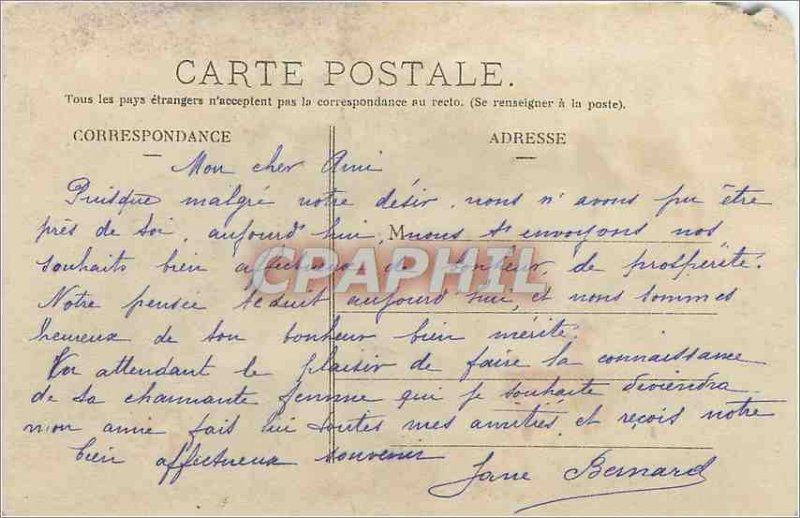 CARTE POSTALE.
Tous les pays étrangers n'acceptent pas la correspondance au recto. (Se renseigner à la poste).
CORRESPONDANCE ADRESSE
Mon cher Ami
Puisque malgré notre désir, nous n'avons pu être
près de toi, aujourd'hui, M nous t' envoyons nos
souhaits bien affectueux de bonheur, de prospérité.
Notre pensée te suit aujourd'hui, et nous sommes
heureux de ton bonheur bien mérité.
En attendant le plaisir de faire la connaissance
de ta charmante femme qui je souhaite deviendra
mon amie fais lui toutes mes amitiés, et reçois notre
bien affectueux souvenir
Jane Bernard
CPAPHIL